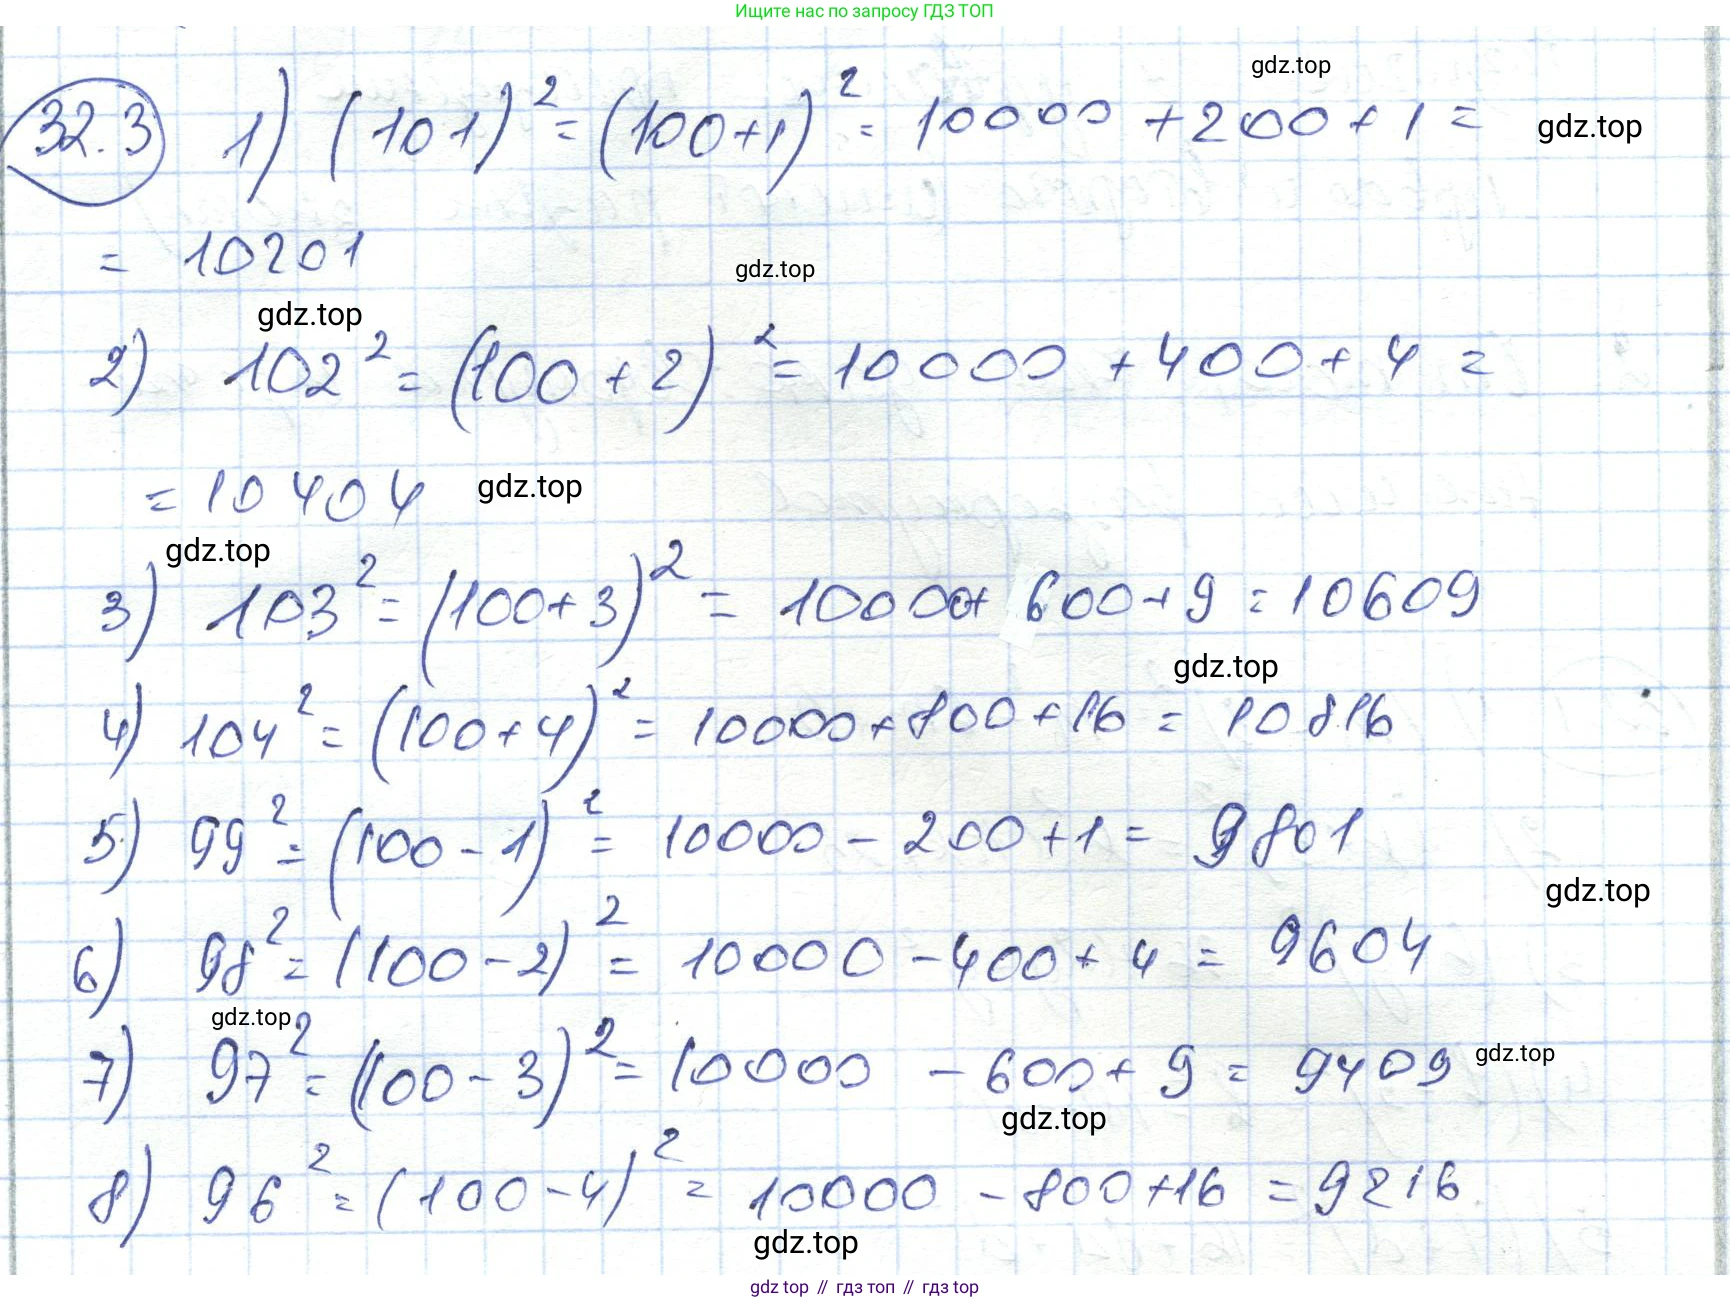 Ищите нас по запросу ГДЗ ТОП
gdz.top
32.3 1) (101)² = (100+1)² = 10000 + 200 + 1 =
gdz.top
= 10201
gdz.top
gdz.top
2) 102² = (100 + 2)² = 10000 + 400 + 4 =
= 10404
gdz.top
gdz.top
3) 103² = (100+3)² = 10000+ 600+9 = 10609
gdz.top
4) 104² = (100+4)² = 10000+800+16 = 10816
5) 99² = (100-1)² = 10000 - 200+1 = 9801
gdz.top
6) 98² = (100-2)² = 10000 - 400 + 4 = 9604
gdz.top
7) 97² = (100-3)² = 10000 - 600 + 9 = 9409
gdz.top
gdz.top
8) 96² = (100-4)² = 10000 - 800+16 = 9216
gdz.top
gdz top // гдз топ // gdz top